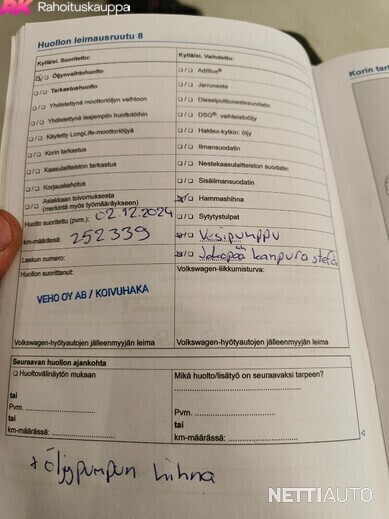 RK Rahoituskauppa
Huollon leimausruutu 8
Kyllä/ei. Suoritettu:
Kyllä/ei. Vaihdettu:
Öljynvaihtohuolto
AdBlue®
Tarkastushuolto
Jarruneste
Yhdistettynä moottoriöljyn vaihtoon
Dieselpolttonestesuodatin
Yhdistettynä laajempiin huoltotöihin
DSG®: vaihteistoöljy
Käytetty LongLife-moottoriöljyä
Haldex-kytkin: öljy
Korin tarkastus
Ilmansuodatin
Kaasulaitteiston tarkastus
Nestekaasulaitteiston suodatin
Korjauskehotus
Sisäilmansuodatin
Asiakkaan toivomuksesta
(merkintä myös työmääräykseen)
Hammashihna
Sytytystulpat
Huolto suoritettu (pvm.): 02.12.2024
km-määrässä: 252339
Vesipumppu
Jakopää kampurasta
Laskun numero:
Huollon suorittanut:
Volkswagen-liikkumisturva:
VEHO OY AB / KOIVUHAKA
Volkswagen-hyötyautojen jälleenmyyjän leima
Volkswagen-hyötyautojen jälleenmyyjän leima
Seuraavan huollon ajankohta
Huoltovälinäytön mukaan
Mikä huolto/lisätyö on seuraavaksi tarpeen?
tai
Pvm.
Pvm.
tai
tai
km-määrässä:
km-määrässä:
+ Öljypumpun hihna
Korin tark
NETTIAUTO